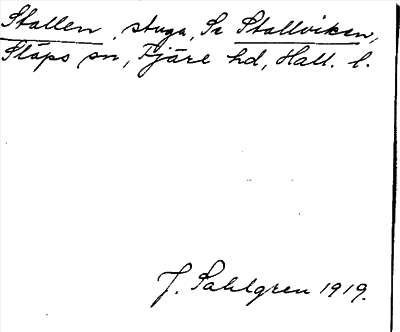 Stallen, stuga, Se Stallviken,
Släps sn, Fjäre hd, Hall. l.
J. Sahlgren 1919.